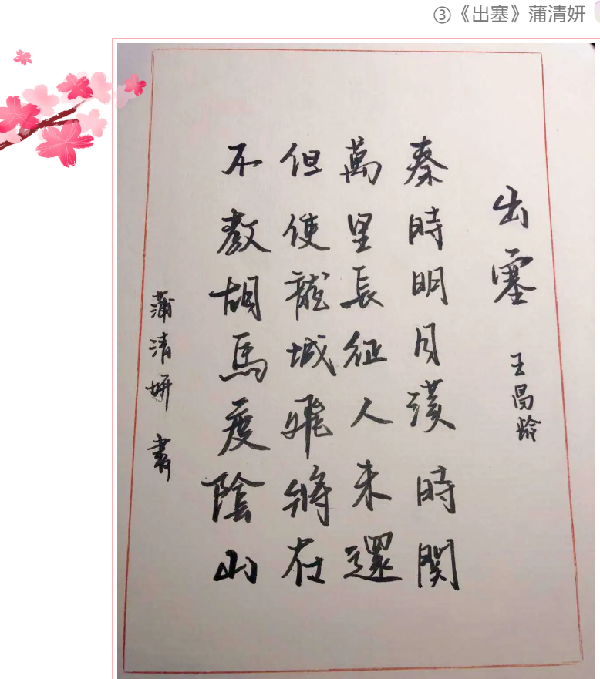 ③《出塞》蒲清妍
出塞 王昌龄
秦時明月漢時関
萬里長征人未還
但使龍城飛将在
不教胡馬度陰山
蒲清妍書